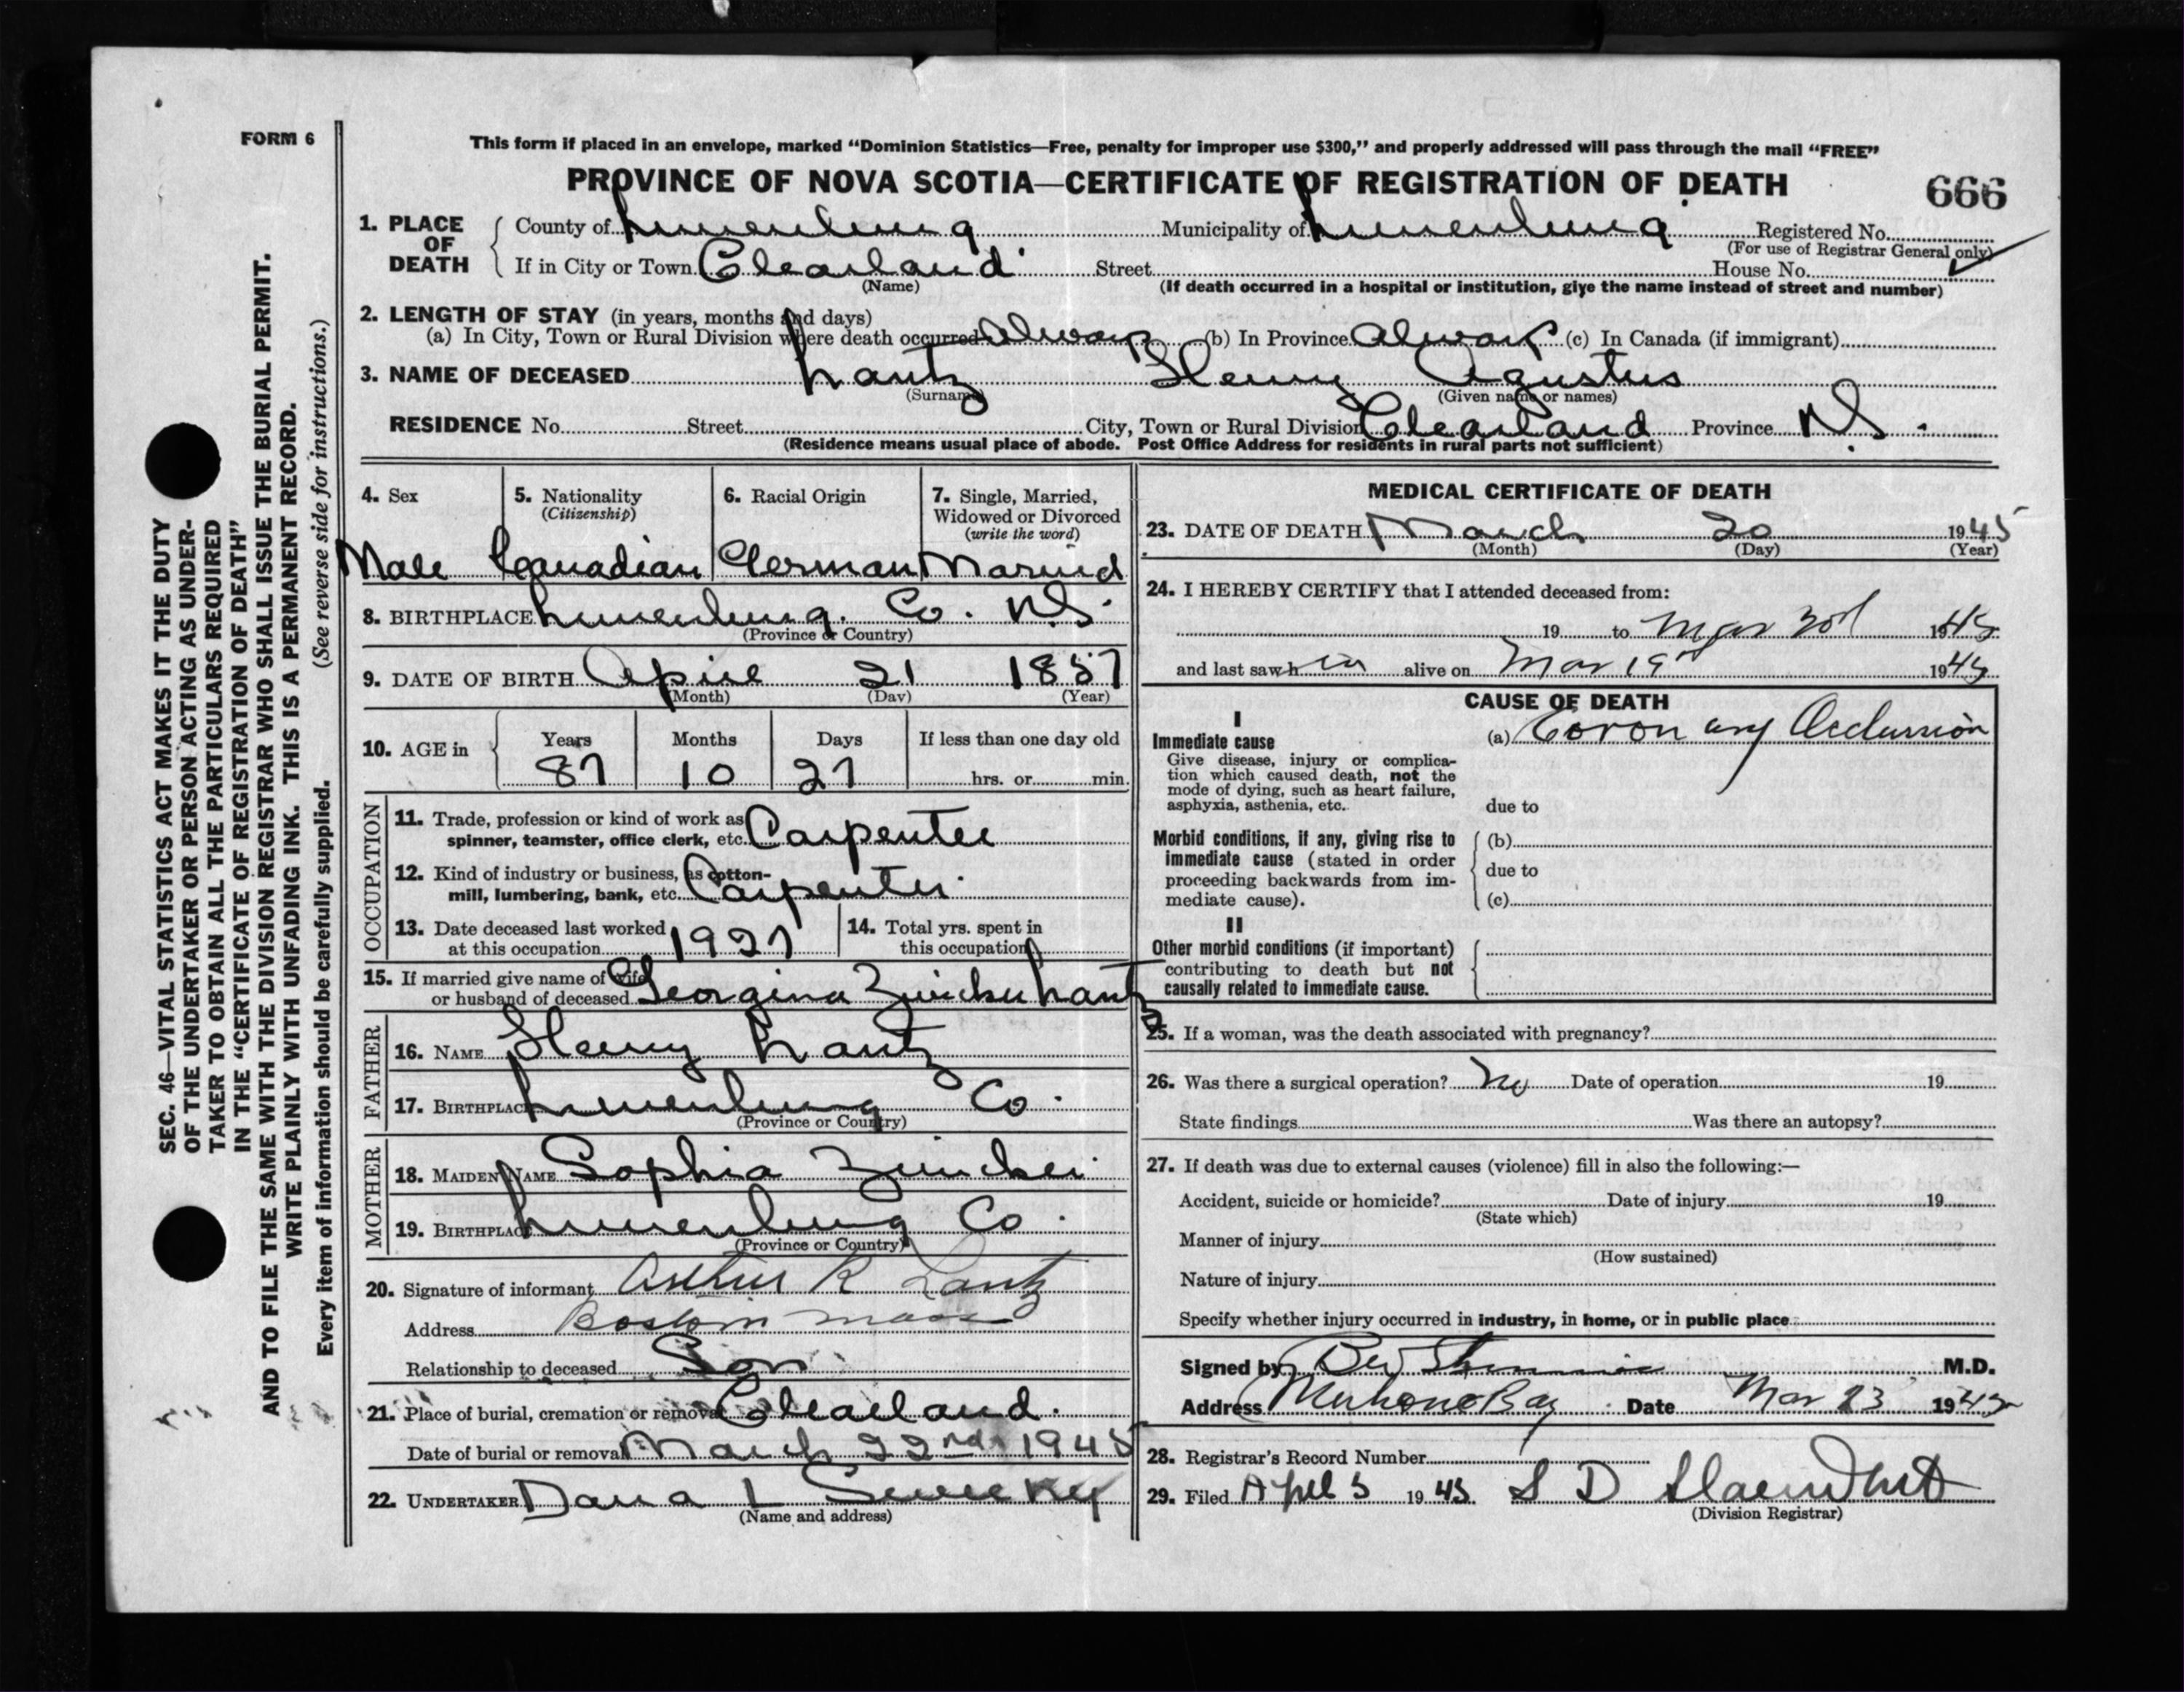 FORM 6
This form if placed in an envelope, marked "Dominion Statistics—Free, penalty for improper use $300," and properly addressed will pass through the mail "FREE"
PROVINCE OF NOVA SCOTIA—CERTIFICATE OF REGISTRATION OF DEATH
666
1. PLACE OF DEATH
County of Lunenburg Municipality of Lunenburg Registered No.
(For use of Registrar General only)
If in City or Town Clearland Street House No.
(Name) (If death occurred in a hospital or institution, give the name instead of street and number)
2. LENGTH OF STAY (in years, months and days)
(a) In City, Town or Rural Division where death occurred Always (b) In Province Always (c) In Canada (if immigrant)
3. NAME OF DECEASED Lantz Henry Agustus
(Surname) (Given name or names)
RESIDENCE No. Street City, Town or Rural Division Clearland Province N.S.
(Residence means usual place of abode. Post Office Address for residents in rural parts not sufficient)
4. Sex
Male
5. Nationality
(Citizenship)
Canadian
6. Racial Origin
German
7. Single, Married,
Widowed or Divorced
(write the word)
Married
8. BIRTHPLACE Lunenburg. Co. N.S.
(Province or Country)
9. DATE OF BIRTH April 21 1857
(Month) (Day) (Year)
10. AGE in
Years Months Days If less than one day old
87 10 27 hrs. or min.
OCCUPATION
11. Trade, profession or kind of work as
spinner, teamster, office clerk, etc. Carpenter
12. Kind of industry or business, as cotton-
mill, lumbering, bank, etc. Carpenter
13. Date deceased last worked
at this occupation 1927
14. Total yrs. spent in
this occupation
15. If married give name of wife
or husband of deceased Georgina Zwicker Lantz
FATHER
16. NAME Henry Lantz
17. BIRTHPLACE Lunenburg Co.
(Province or Country)
MOTHER
18. MAIDEN NAME Sophia Zwicker
19. BIRTHPLACE Lunenburg Co.
(Province or Country)
20. Signature of informant Arthur R Lantz
Address Boston Mass
Relationship to deceased Son
21. Place of burial, cremation or removal Clearland.
Date of burial or removal March 22nd 1945
22. UNDERTAKER Dana L Sweeney
(Name and address)
MEDICAL CERTIFICATE OF DEATH
23. DATE OF DEATH March 20 1945
(Month) (Day) (Year)
24. I HEREBY CERTIFY that I attended deceased from:
19 to Mar 20 1945
and last saw h im alive on Mar 19 1945
CAUSE OF DEATH
I
Immediate cause
Give disease, injury or complica-
tion which caused death, not the
mode of dying, such as heart failure,
asphyxia, asthenia, etc.
(a) Coronary Occlusion
due to
Morbid conditions, if any, giving rise to
immediate cause (stated in order
proceeding backwards from im-
mediate cause).
(b)
due to
(c)
II
Other morbid conditions (if important)
contributing to death but not
causally related to immediate cause.
25. If a woman, was the death associated with pregnancy?
26. Was there a surgical operation? No Date of operation 19
State findings Was there an autopsy?
27. If death was due to external causes (violence) fill in also the following:—
Accident, suicide or homicide? Date of injury 19
(State which)
Manner of injury
(How sustained)
Nature of injury
Specify whether injury occurred in industry, in home, or in public place
Signed by M.D.
Address Mahone Bay Date Mar 23 1945
28. Registrar's Record Number
29. Filed April 3 1945 S D
(Division Registrar)
SEC. 46—VITAL STATISTICS ACT MAKES IT THE DUTY
OF THE UNDERTAKER OR PERSON ACTING AS UNDER-
TAKER TO OBTAIN ALL THE PARTICULARS REQUIRED
IN THE "CERTIFICATE OF REGISTRATION OF DEATH"
AND TO FILE THE SAME WITH THE DIVISION REGISTRAR WHO SHALL ISSUE THE BURIAL PERMIT.
WRITE PLAINLY WITH UNFADING INK. THIS IS A PERMANENT RECORD.
(See reverse side for instructions.)
Every item of information should be carefully supplied.